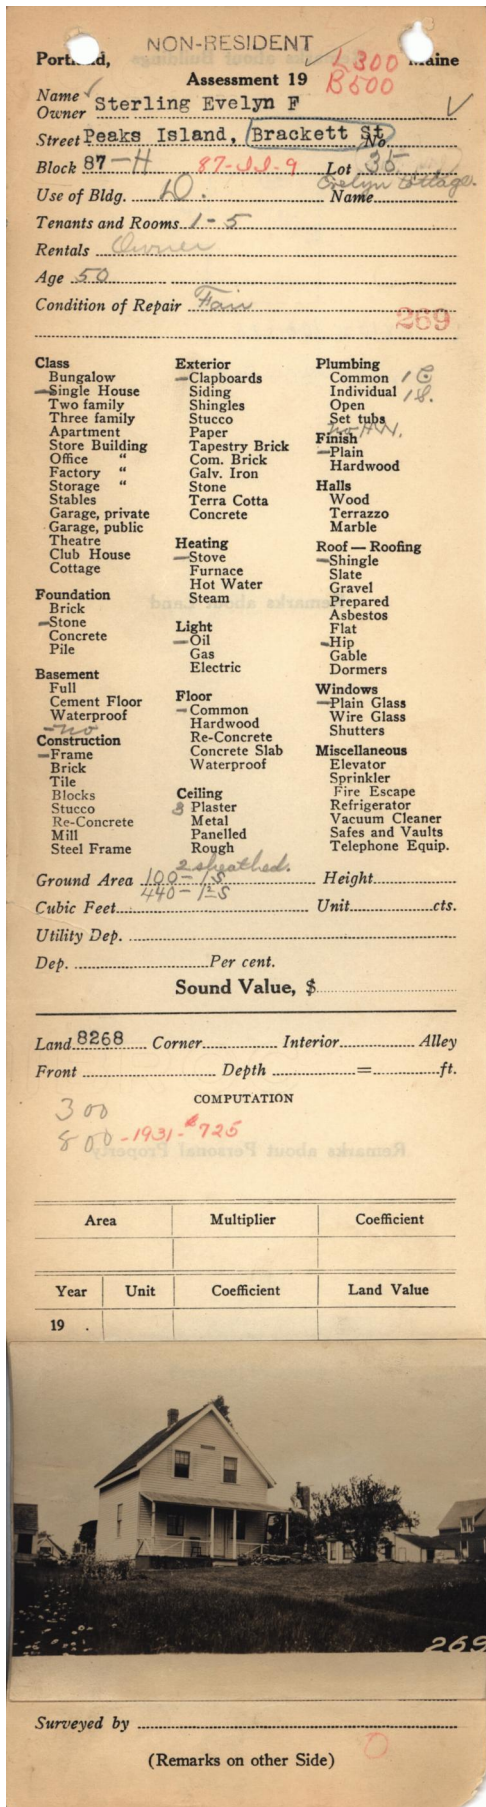 NON-RESIDENT
Portland, Maine
L300
B500
Assessment 19
Name Owner Sterling Evelyn F
Street Peaks Island, Brackett St No.
Block 87-H 87-II-9 Lot 35
Evelyn Cottage.
Use of Bldg. D. Name
Tenants and Rooms 1-5
Rentals Owner
Age 50
Condition of Repair Fair
269
Class
Bungalow
Single House
Two family
Three family
Apartment
Store Building
Office "
Factory "
Storage "
Stables
Garage, private
Garage, public
Theatre
Club House
Cottage
Foundation
Brick
Stone
Concrete
Pile
Basement
Full
Cement Floor
Waterproof
no
Construction
Frame
Brick
Tile
Blocks
Stucco
Re-Concrete
Mill
Steel Frame
Exterior
Clapboards
Siding
Shingles
Stucco
Paper
Tapestry Brick
Com. Brick
Galv. Iron
Stone
Terra Cotta
Concrete
Heating
Stove
Furnace
Hot Water
Steam
Light
Oil
Gas
Electric
Floor
Common
Hardwood
Re-Concrete
Concrete Slab
Waterproof
Ceiling
3 Plaster
Metal
Panelled
Rough
2 sheathed.
Plumbing
Common 1 C
Individual 1 S.
Open
Set tubs
no H.W.
Finish
Plain
Hardwood
Halls
Wood
Terrazzo
Marble
Roof — Roofing
Shingle
Slate
Gravel
Prepared
Asbestos
Flat
Hip
Gable
Dormers
Windows
Plain Glass
Wire Glass
Shutters
Miscellaneous
Elevator
Sprinkler
Fire Escape
Refrigerator
Vacuum Cleaner
Safes and Vaults
Telephone Equip.
Ground Area 100-1S Height
440-1½S
Cubic Feet Unit cts.
Utility Dep.
Dep. Per cent.
Sound Value, $
Land 8268 Corner Interior Alley
Front Depth = ft.
COMPUTATION
300
800 -1931- $725
Area Multiplier Coefficient
Year Unit Coefficient Land Value
19 .
269
Surveyed by
0
(Remarks on other Side)